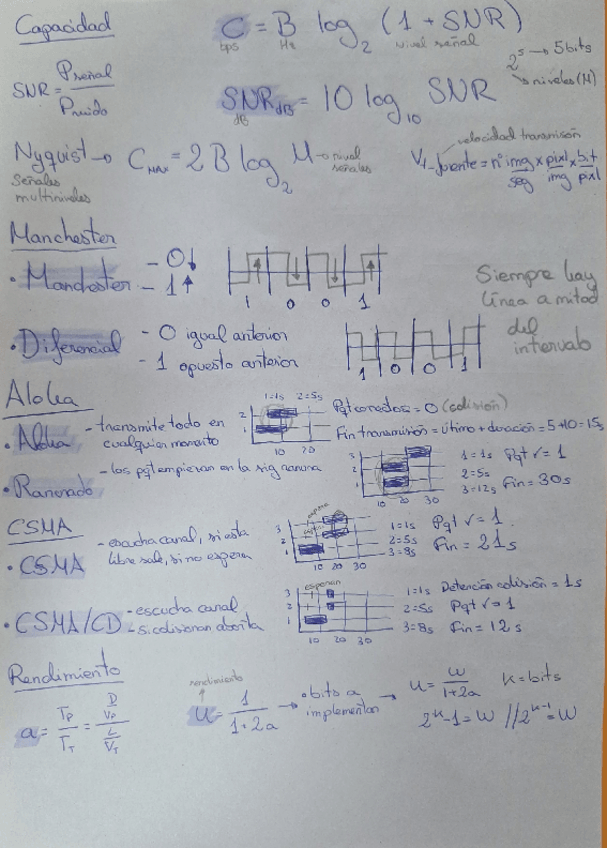 Capacidad
C = B log₂ (1 + SNR)
bps Hz nivel señal
2⁵ → 5 bits
↳ niveles (M)
SNR = Pseñal / Pruido
SNR dB = 10 log₁₀ SNR
dB
Nyquist → CMAX = 2 B log₂ M → nivel señales
Señales multiniveles
velocidad transmisión
Vt_fuente = nº img/seg x pixl/img x bit/pixl
Manchester
• Manchester - 0 ↓
- 1 ↑
1 0 0 1
Siempre hay línea a mitad del intervalo
• Diferencial - 0 igual anterior
- 1 opuesto anterior
1 0 0 1
Aloha
• Aloha - transmite todo en cualquier momento
1=1s 2=5s
2
1
10 20
Pqt correctos = 0 (colisión)
Fin transmisión = último + duración = 5+10 = 15s
• Ranurado - los pqt empiezan en la sig ranura
3
2
1
10 20 30
1=1s Pqt √ = 1
2=5s
3=12s Fin = 30s
CSMA
• CSMA - escucha canal, si esta libre sale, si no espera
espera
3
2
1
10 20 30
1=1s Pqt √ = 1
2=5s
3=8s Fin = 21s
• CSMA/CD - escucha canal
- si colisionan aborta
esperan
3
2
1
10 20 30
1=1s Detención colisión = 1s
2=5s Pqt √ = 1
3=8s Fin = 12s
Rendimiento
a = Tp / Tt = (D / Vp) / (L / Vt)
rendimiento
U = 1 / (1+2a) → bits a implementar → U = W / (1+2a) K = bits
2ᴷ - 1 = W // 2ᴷ⁻¹ = W